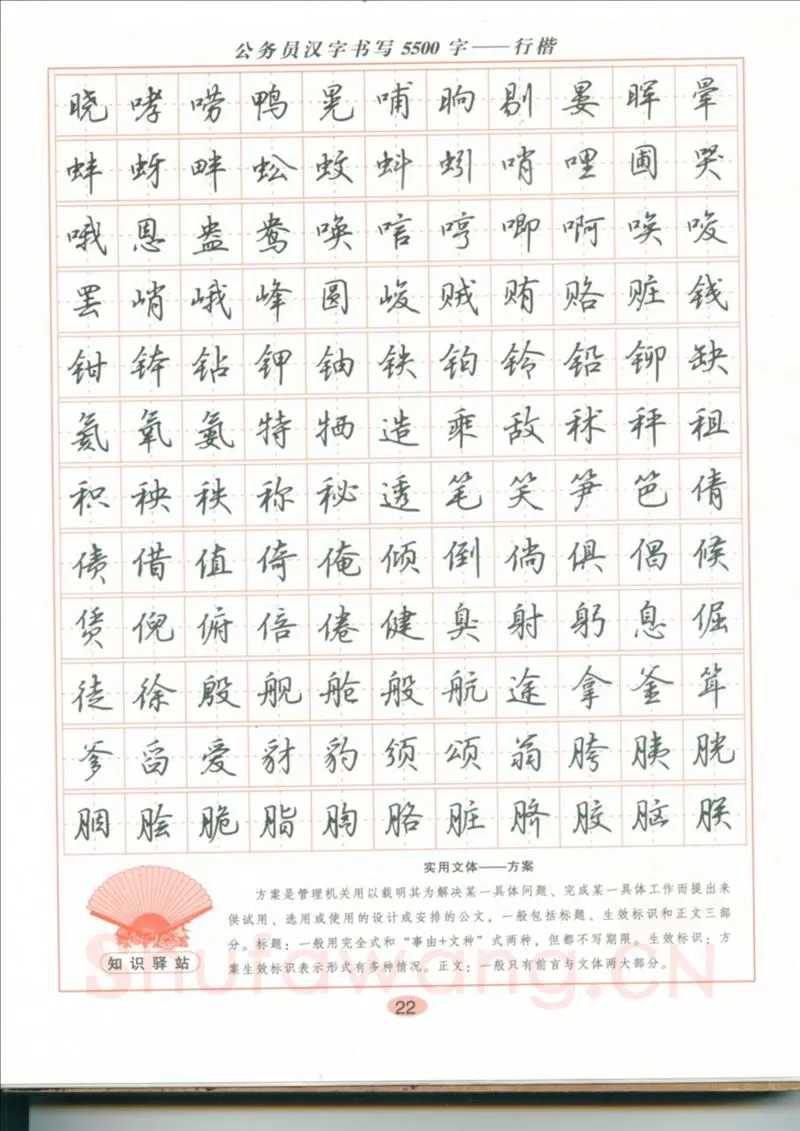 公务员汉字书写5500字——行楷
晓哮唠鸭晃哺晌剔晏晖晕
蚌蚜畔蚣蚊蚪蚓哨哩圃哭
哦恩盎鸯唤唁哼唧啊唉唆
罢峭峨峰圆峻贼贿赂赃钱
钳钵钻钾铀铁铂铃铅铆缺
氦氧氨特牺造乘敌秫秤租
积秧秩称秘透笔笑笋笆倩
债借值倚俺倾倒倘俱倡候
赁倪俯倍倦健臭射躬息倔
徒徐殷舰舱般航途拿釜耸
爹舀爱豺豹须颂翁胯胰胱
胭脍脆脂胸胳脏脐胶脑朕
实用文体——方案
方案是管理机关用以载明其为解决某一具体问题、完成某一具体工作而提出来
供试用、选用或使用的设计或安排的公文，一般包括标题、生效标识和正文三部
分。标题：一般用完全式和“事由+文种”式两种，但都不写期限。生效标识：方
案生效标识表示形式有多种情况。正文：一般只有前言与文体两大部分。
知识驿站
Shufawang.CN
22